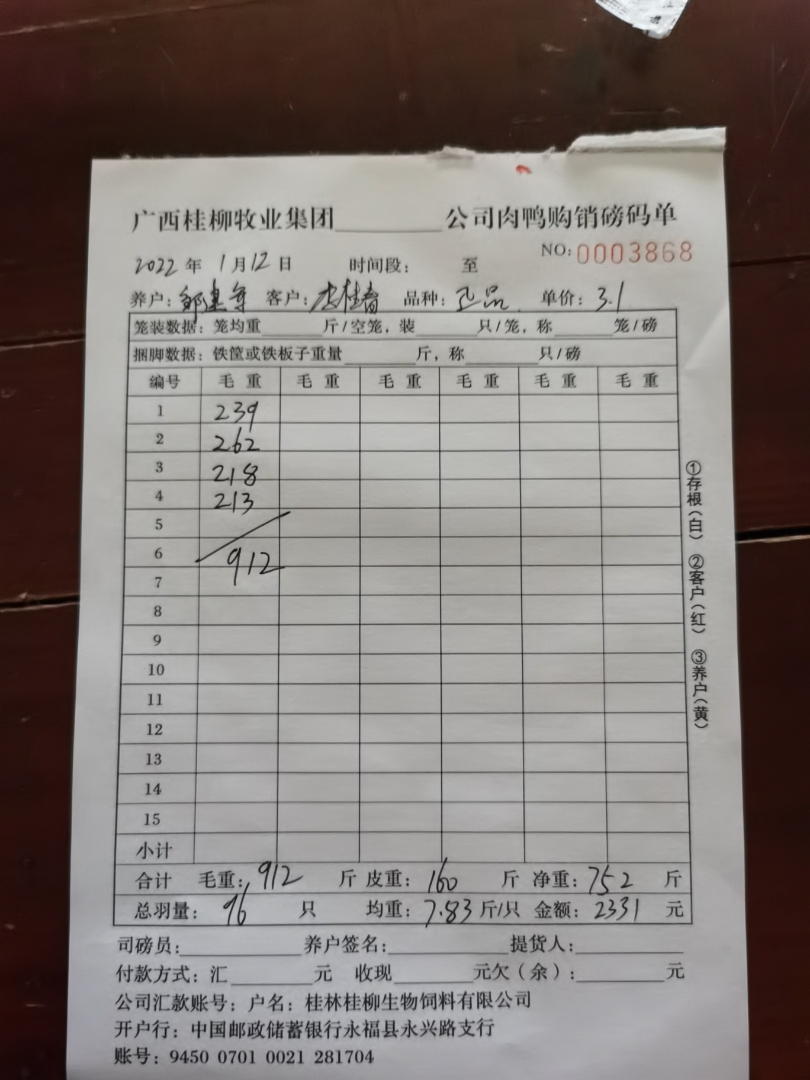 广西桂柳牧业集团________公司肉鸭购销磅码单
NO: 0003868
2022年 1月12日 时间段: 至
养户: 客户: 品种: 正品 单价: 3.1
笼装数据: 笼均重______斤/空笼, 装______只/笼, 称______笼/磅
捆脚数据: 铁筐或铁板子重量______斤, 称______只/磅
编号 毛重 毛重 毛重 毛重 毛重 毛重
1 239
2 262
3 218
4 213
5
6 912
7
8
9
10
11
12
13
14
15
小计
合计 毛重: 912 斤 皮重: 160 斤 净重: 752 斤
总羽量: 96 只 均重: 7.83 斤/只 金额: 2331 元
司磅员:________养户签名:________提货人:________
付款方式: 汇______元 收现______元欠(余):______元
公司汇款账号: 户名: 桂林桂柳生物饲料有限公司
开户行: 中国邮政储蓄银行永福县永兴路支行
账号: 9450 0701 0021 281704
①存根(白) ②客户(红) ③养户(黄)